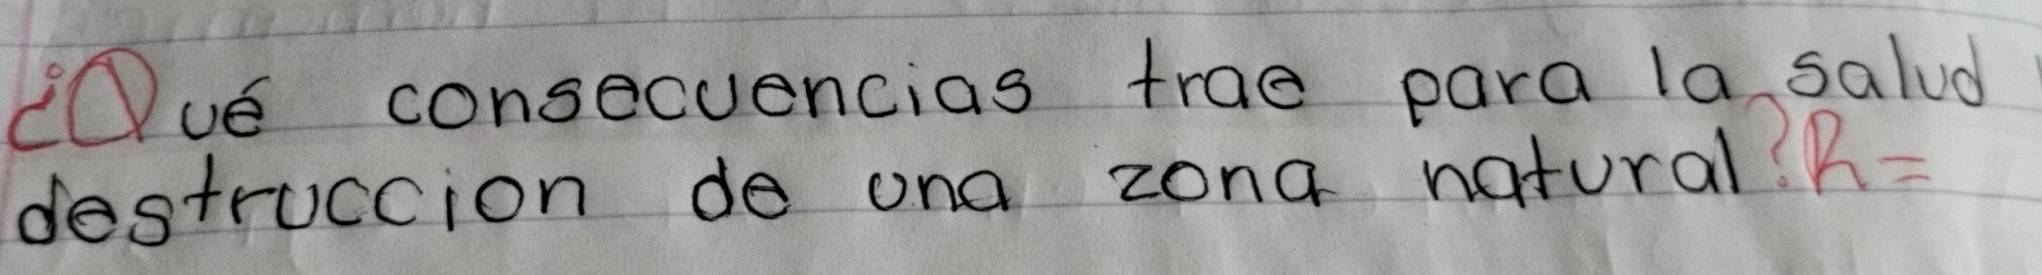 ¿Qué consecuencias trae para la salud
destruccion de una zona natural? R=